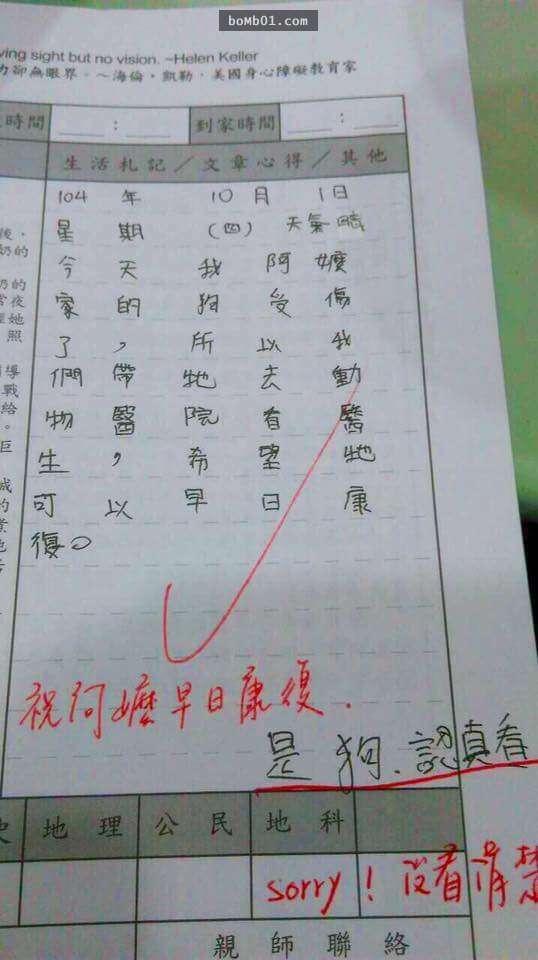 boMb01.com
ving sight but no vision. ~Helen Keller
力卻無眼界。～海倫・凱勒，美國身心障礙教育家
時間 ： 到家時間 ：
生活札記／文章心得／其他
104 年 10 月 1 日
星期（四） 天氣晴
今天我阿嬤
家的狗受傷
了，所以我
們帶牠去動
物醫院看醫
生，希望牠
可以早日康
復。
後，
奶的
奶的
常夜
她
照
導
戰
給
。
巨
成
的
業
祝阿嬤早日康復.
是狗.認真看
地理 公民 地科
sorry！沒看清楚
親師聯絡